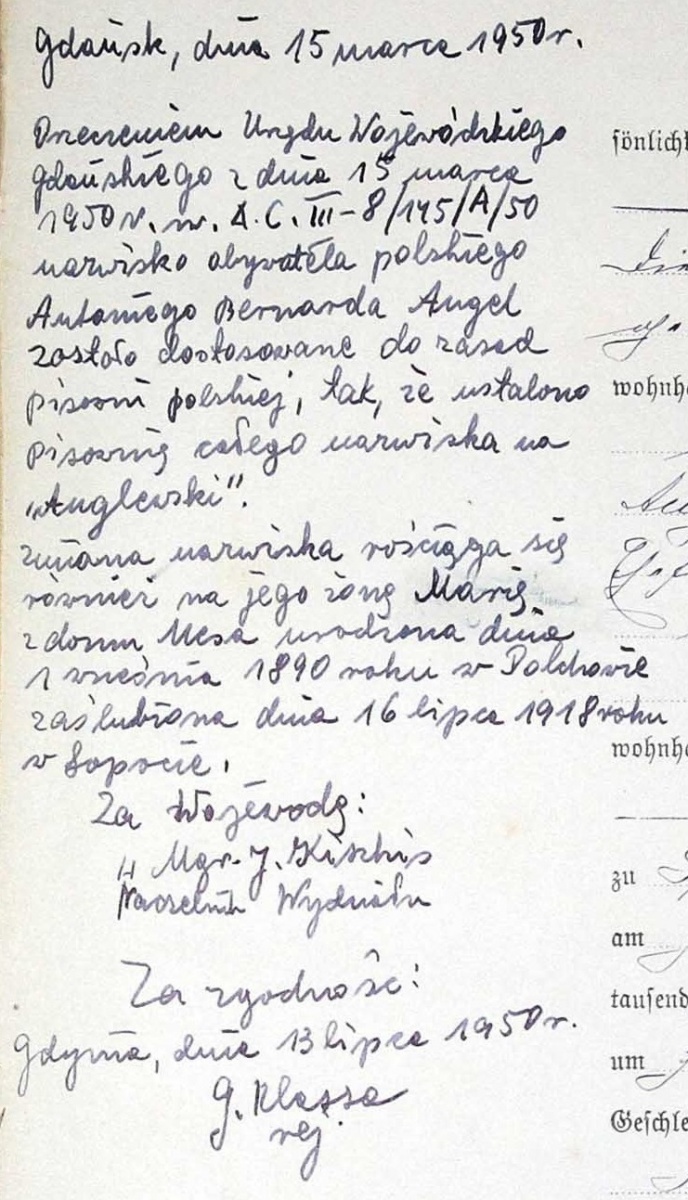 Gdańsk, dnia 15 marca 1950 r.
Orzeczeniem Urzędu Wojewódzkiego
Gdańskiego z dnia 15 marca
1950 r. nr. A.C. III-8/145/A/50
nazwisko obywatela polskiego
Antoniego Bernarda Angel
zostało dostosowane do zasad
pisowni polskiej, tak, że ustalono
pisownię całego nazwiska na
„Anglewski".
zmiana nazwiska rościąga się
również na jego żonę Marię
z domu Mesa urodzona dnia
1 września 1890 roku w Połchowie
zaślubiona dnia 16 lipca 1918 roku
w Sopocie.
Za Wojewodę:
Mgr. J.
Naczelnik Wydziału
Za zgodność:
Gdynia, dnia 13 lipca 1950 r.
G. Klassa
rej.
sönlichk
wohnha
wohnha
zu
am
tausend
um
Geschle